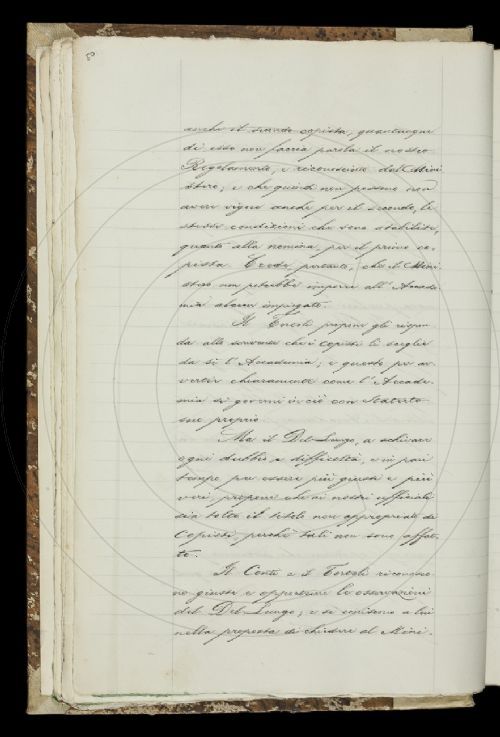 anche il secondo copista, quantunque
di esso non faccia parola il nostro
Regolamento, è riconosciuto dal Mini
stero; e che quindi non possono non
aver vigore anche per il secondo, le
stesse condizioni che sono stabilite,
quanto alla nomina, per il primo co-
pista. Crede, pertanto, che il Mini
stero non potrebbe imporre all'Accade-
mia alcun impiegato.
Il Tortoli propone gli rispon
da alla che i copisti li sceglie
da sè l'Accademia; e questo per av-
vertir chiaramente come l'Accade-
mia si governi in ciò con Statuto
suo proprio.
Ma il Del Lungo, a schivare
ogni dubbio e difficoltà, e in pari
tempo per essere più giusti e più
veri, propone che ai nostri ufficiali
sia tolto il titolo non appropriato di
Copisti perchè tali non sono affat-
to.
Il Conti e il Tortoli riconosco
no giuste e opportune le osservazioni
del Del Lungo; e si uniscono a lui
nella proposta di chiedere al Mini-